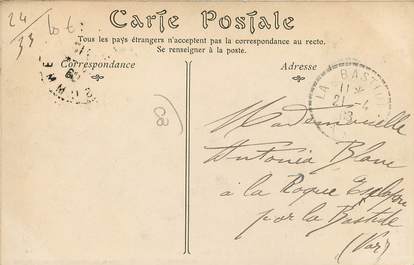 24/33
10 €
Carte Postale
Tous les pays étrangers n'acceptent pas la correspondance au recto.
Se renseigner à la poste.
Correspondance
Adresse
LA BASTI
11
21 -4
08
Mademoiselle
Antonia Blanc
à la Roque Esclapon
par la Bastide
(Var)